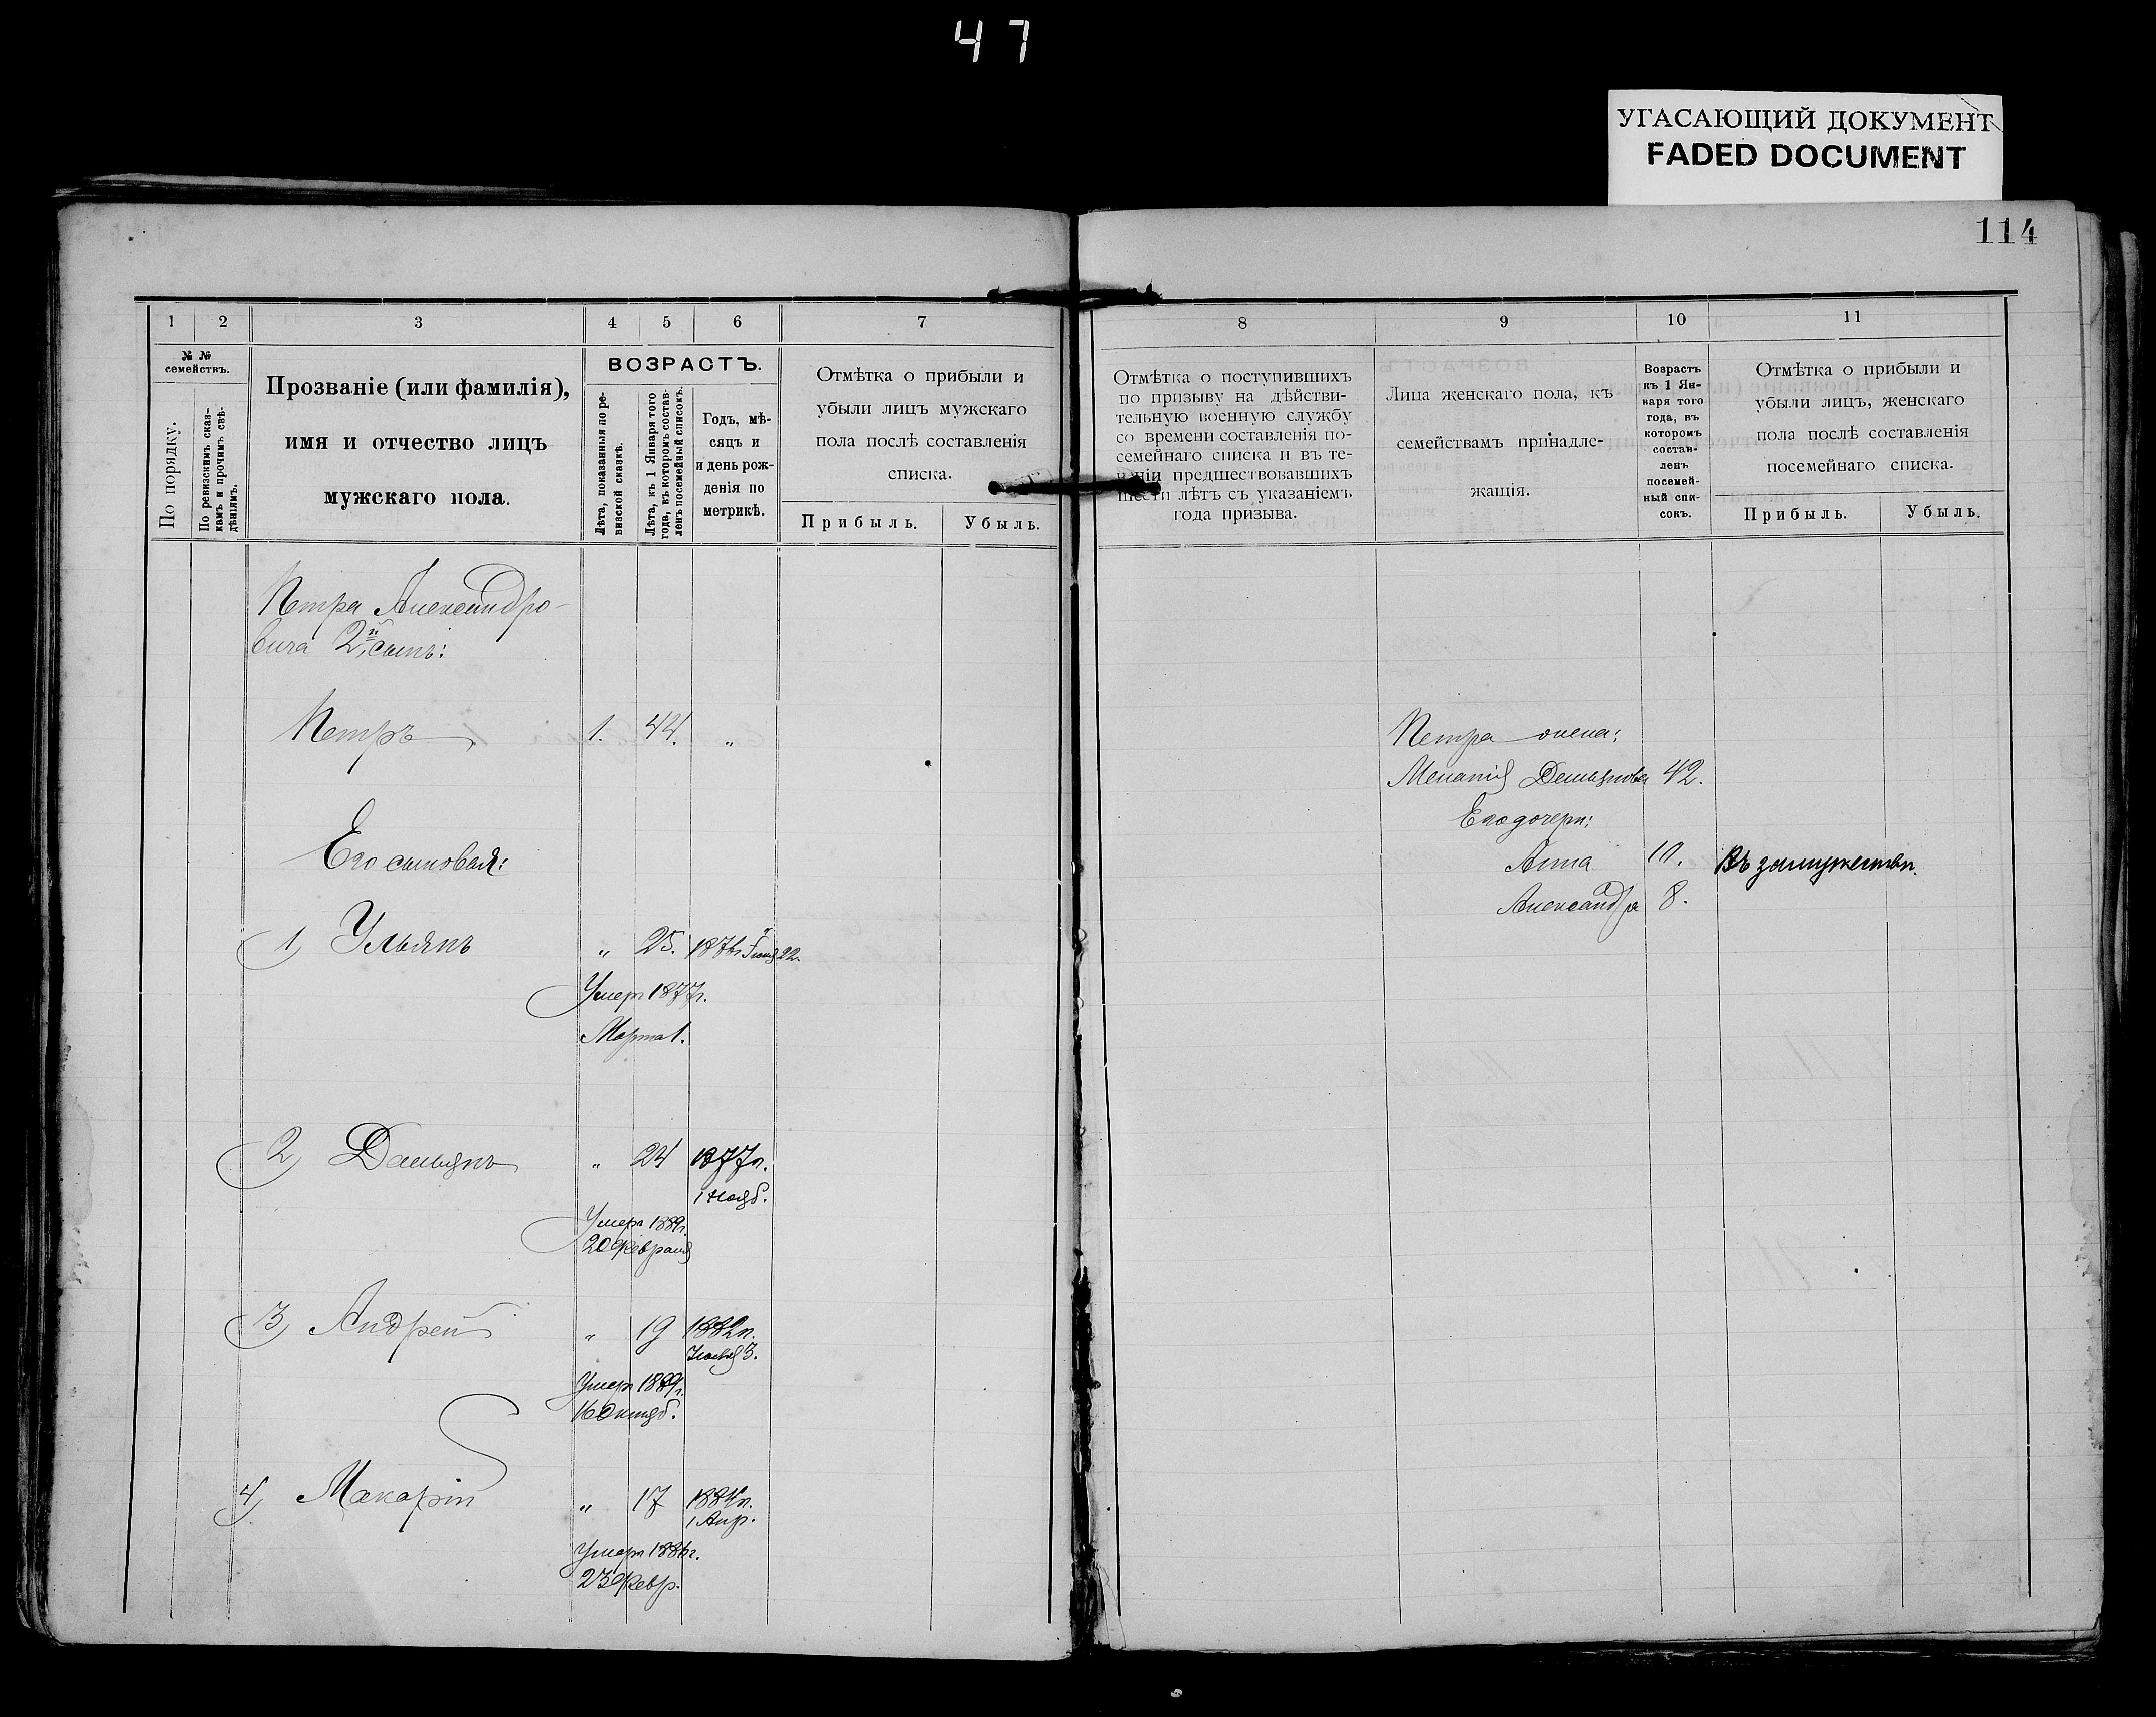 47
УГАСАЮЩИЙ ДОКУМЕНТ
FADED DOCUMENT
114
1 2 3 4 5 6 7
№ №
семействъ.
По порядку.
По ревизскимъ сказ-
камъ и прочимъ свѣ-
дѣніямъ.
Прозваніе (или фамилія),
имя и отчество лицъ
мужскаго пола.
ВОЗРАСТЪ.
Лѣта, показанныя по ре-
визской сказкѣ.
Лѣта, къ 1 Января того
года, въ которомъ состав-
ленъ посемейный списокъ.
Годъ, мѣ-
сяцъ и
и день рож-
денія по
метрикѣ.
Отмѣтка о прибыли и
убыли лицъ мужскаго
пола послѣ составленія
списка.
Прибыль. Убыль.
Петра Александро-
вича 2й, сынъ:
Петръ 1. 44. "
Его сыновья:
1) Ульянъ " 25. 1876г Іюня 22.
Умеръ 1877г.
Марта 1.
2) Дамьянъ " 24 1877г.
1 Нояб.
Умеръ 1889г.
20 Февраля
3) Андрей " 19 1882г.
3.
Умеръ 1889г.
16 Октяб.
4) Макарій " 17 1884г.
1 Апр.
Умеръ 1886г.
23 Февр.
8 9 10 11
Отмѣтка о поступившихъ
по призыву на дѣйстви-
тельную военную службу
со времени составленія по-
семейнаго списка и въ те-
ченіи предшествовавшихъ
шести лѣтъ съ указаніемъ
года призыва.
Лица женскаго пола, къ
семействамъ принадле-
жащія.
Возрастъ
къ 1 Ян-
варя того
года, въ
которомъ
состав-
ленъ
посемей-
ный спи-
сокъ.
Отмѣтка о прибыли и
убыли лицъ, женскаго
пола послѣ составленія
посемейнаго списка.
Прибыль. Убыль.
Петра жена:
Меланія Демьянова 42.
Его дочери:
Анна 10. Въ замужествѣ.
Александра 8.